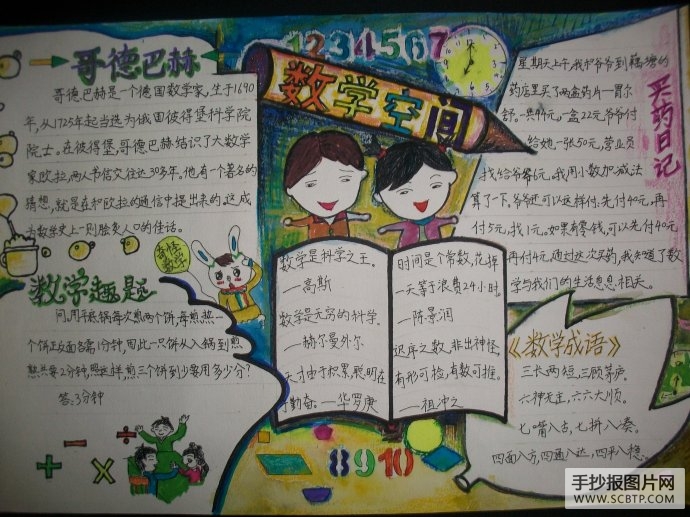 1234567
数学空间
哥德巴赫
哥德巴赫是一个德国数学家,生于1690
年,从1725年起当选为俄国彼得堡科学院
院士。在彼得堡,哥德巴赫结识了大数学
家欧拉,两人书信交往达30多年。他有一个著名的
猜想,就是在和欧拉的通信中提出来的。这成
为数学史上一则脍炙人口的佳话。
奇怪
数学
数学趣题
问:用平底锅每次煎两个饼,每煎熟一
个饼正反面各需1分钟,因此一只饼从入锅到煎
熟共要2分钟,照这样,煎三个饼到少要用多少分?
答:3分钟
+ - × ÷
数学是科学之王。
——高斯
数学是无穷的科学。
——赫尔曼外尔
天才由于积累,聪明在
于勤奋。——华罗庚
时间是个常数,花掉
一天等于浪费24小时。
——陈景润
迟序之数,非出神怪,
有形可检,有数可推。
——祖冲之
8910
买药日记
星期天上午,我和爷爷到
药店里买了两盒药片
舒。一共44元,一盒22元爷爷付
给她一张50元,营业员
找给爷爷6元。我用小数加减法
算了一下。爷爷还可以这样付:先付40元,再
付5元,找1元。如果有零钱,可以先付40元
再付4元。通过这次买药,我知道了数
学与我们的生活息息相关。
《数学成语》
三长两短,三顾茅庐。
六神无主,六六大顺。
七嘴八舌,七拼八凑。
四面八方,四通八达,四平八稳。
手抄报图片网
WWW.SCBTP.COM